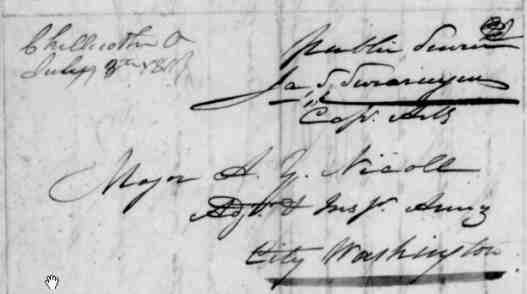 Chillicotha O
July
Public Service
Ja. S. Swearingen
Capt. Arts
Major A. Y. Nicoll
Adjt. & Inspr. Army
City Washington